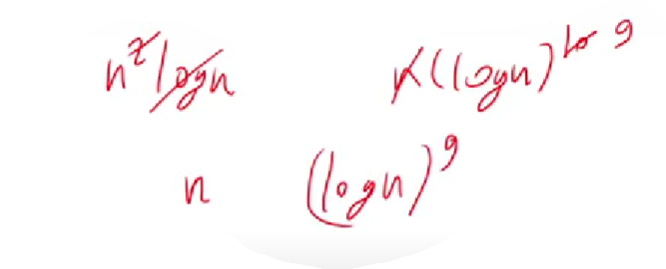 n² log n n(log n)¹⁰ 9
n (log n)⁹